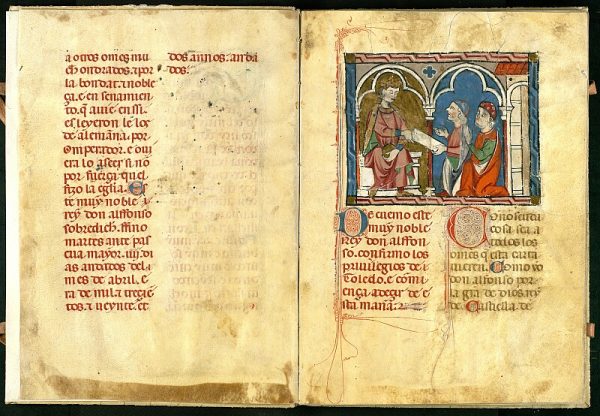 a otros om̃es mu
ch ondrados: ⁊ por
la bondat: ⁊ noble
ça, e en
q̃ auie en ssi
es leyeron le los
de alemanna. por
emperador. e ouie
ra lo a seer si nō
por fuerça que l
fizo la eglia. Es
te muy noble
rey don alfonso
sobredich̃. ffino
martes ante pas
cua mayor. iiij. di
as andados del
mes de abril. e
ra de mil. ⁊ trezie
tos. ⁊ ueynte. et
dos annos. anda
dos.
De cuemo este
muy noble
rey don alffon
so. confirmo los
priuilegios de
toledo. e comi
ença a dezir de e
sta manera.
Conoscida
cosa sea a
todos los
om̃es q̃ esta carta
uieren. Como yo
don alfonso por
la gr̃a de dios rey
de Castiella. de